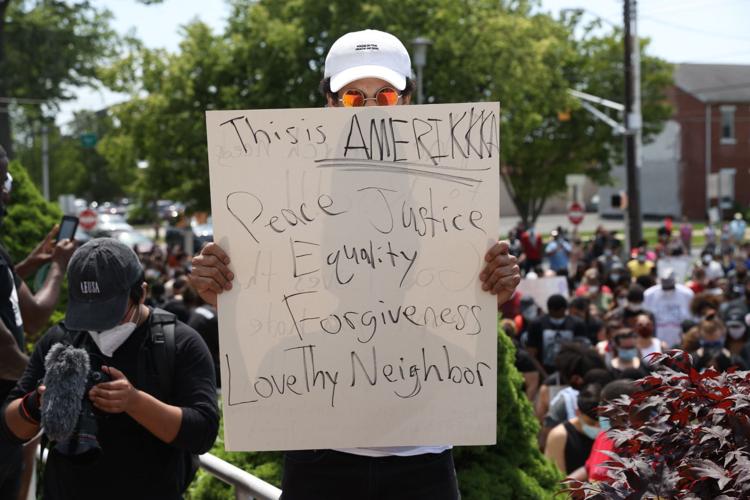 This is AMERIKKKA
Peace Justice
Equality
Forgiveness
Love Thy Neighbor